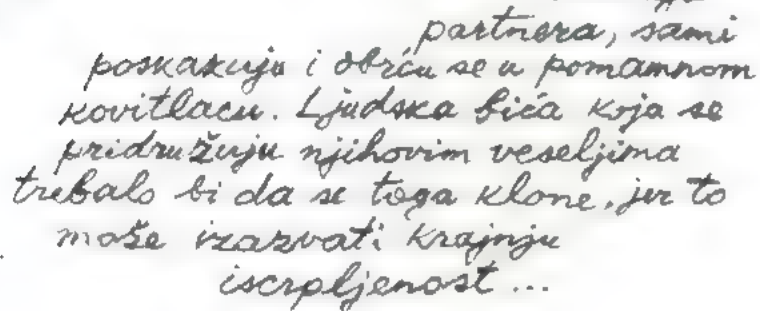 partnera, sami
poskakuju i obrću se u pomamnom
kovitlacu. Ljudska bića koja se
pridružuju njihovim veseljima
trebalo bi da se toga klone, jer to
može izazvati krajnju
iscrpljenost ...